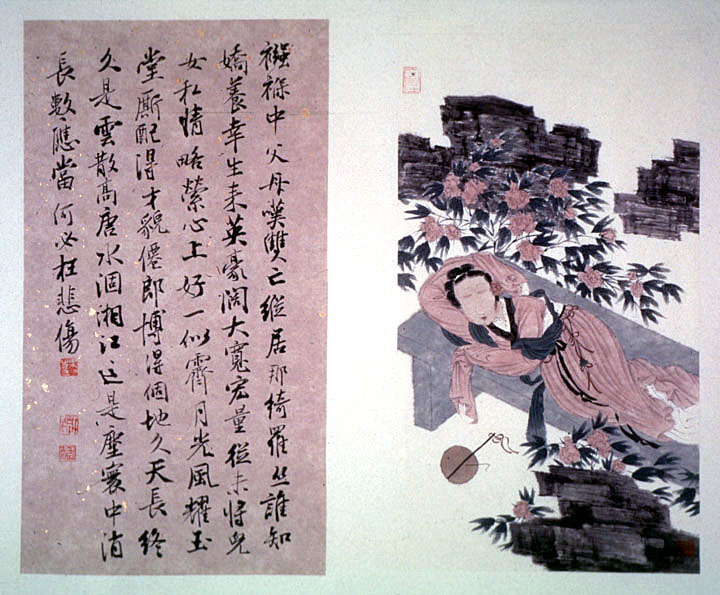 襁褓中父母嘆雙亡縱居那綺羅丛誰知
嬌養幸生来英豪闊大寬宏量從未將兒
女私情略縈心上好一似霽月光風耀玉
堂厮配得才貌僊郎博得個地久天長終
久是雲散高唐水涸湘江这是塵寰中消
長數應當何必枉悲傷